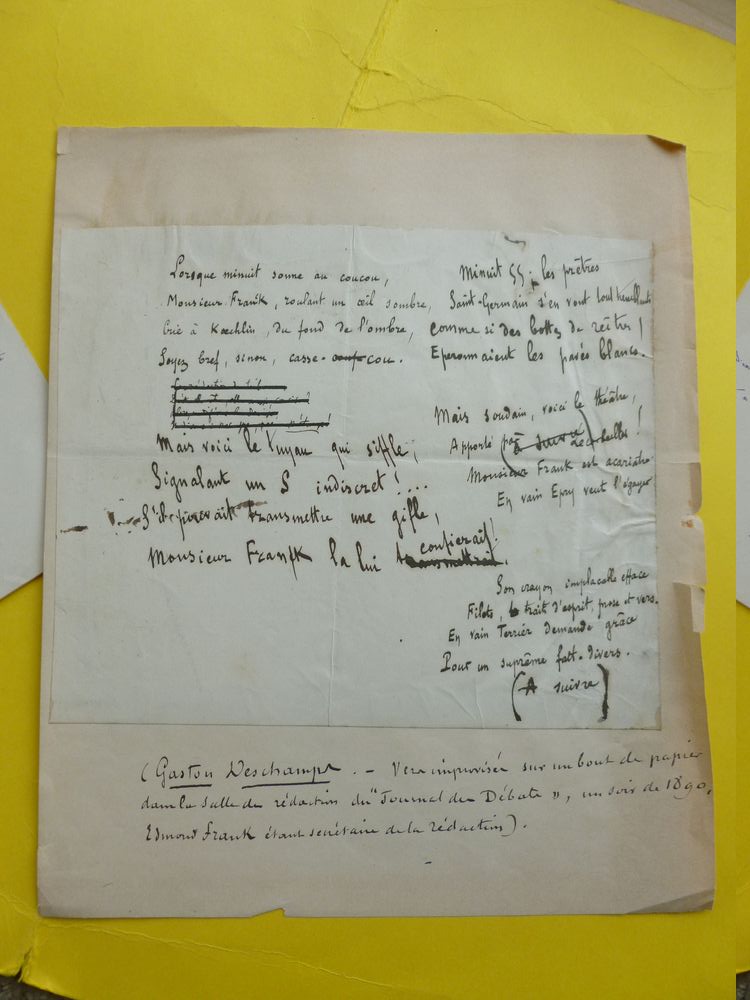 Lorsque minuit sonne au coucou,
Monsieur Franck, roulant un œil sombre,
Crie à Kœchlin, du fond de l'ombre,
Soyez bref, sinon, casse-cou.
Mais voici le tuyau qui siffle,
Signalant un S indiscret!...
S'il pouvait transmettre une gifle,
Monsieur Franck la lui confierait!
Minuit 55; les prêtres
Saint-Germain s'en vont tout tremblants
comme si des bottes de reîtres!
Eperonnaient les pavés blancs.
Mais soudain, voici le théâtre,
Apporté par
(à suivre)
Monsieur Frank est acariâtre
En vain Epry veut l'égayer
Son crayon implacable efface
Filets, trait d'esprit, prose et vers.
En vain Terrier demande grâce
Pour un suprême fait-divers.
(A suivre)
(Gaston Deschamps. - Vers improvisés sur un bout de papier
dans la salle de rédaction du "Journal des Débats", un soir de 1890,
Edmond Frank étant secrétaire de la rédaction).